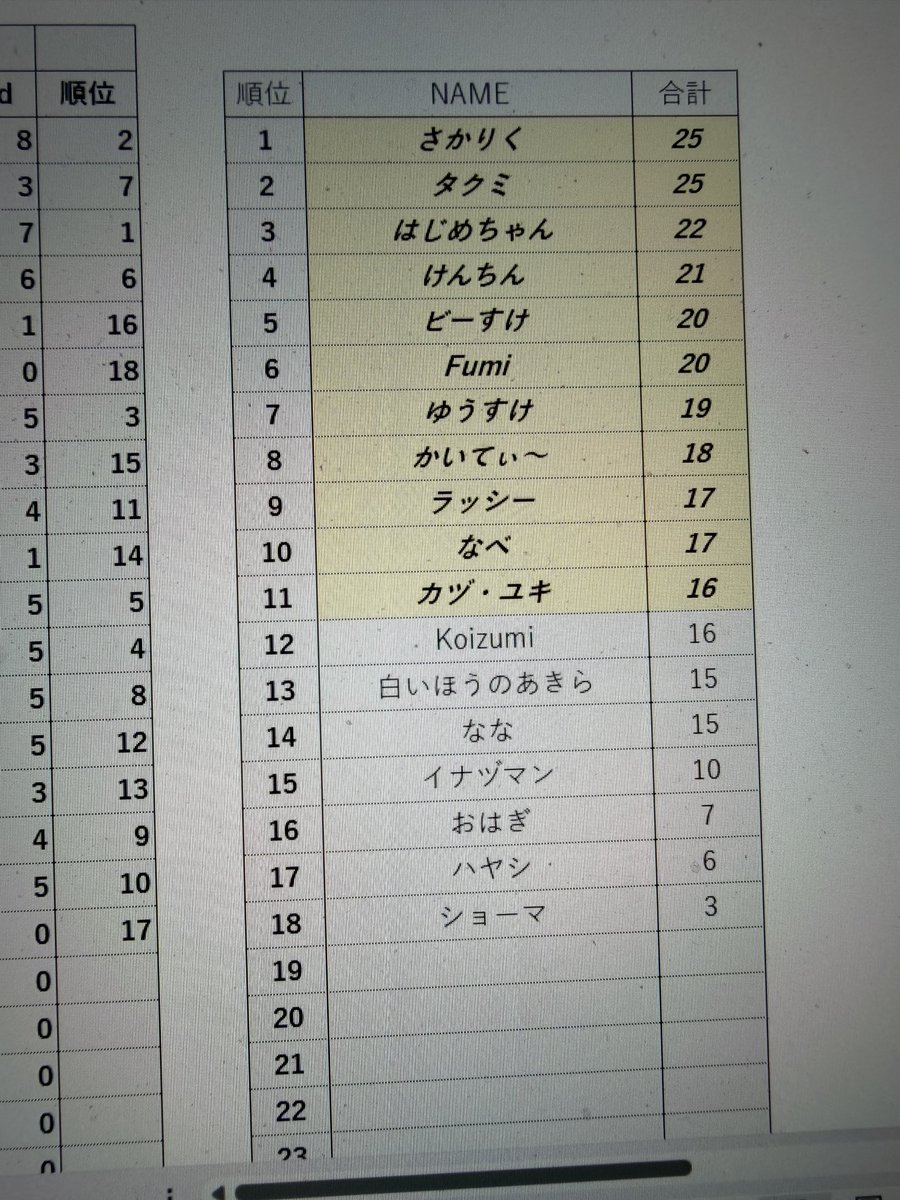 d 順位
8 2
3 7
7 1
6 6
1 16
0 18
5 3
3 15
4 11
1 14
5 5
5 4
5 8
5 12
3 13
4 9
5 10
0 17
0
0
0
0
0
順位 NAME 合計
1 さかりく 25
2 タクミ 25
3 はじめちゃん 22
4 けんちん 21
5 ビーすけ 20
6 Fumi 20
7 ゆうすけ 19
8 かいてぃ～ 18
9 ラッシー 17
10 なべ 17
11 カヅ・ユキ 16
12 Koizumi 16
13 白いほうのあきら 15
14 なな 15
15 イナヅマン 10
16 おはぎ 7
17 ハヤシ 6
18 ショーマ 3
19
20
21
22
23